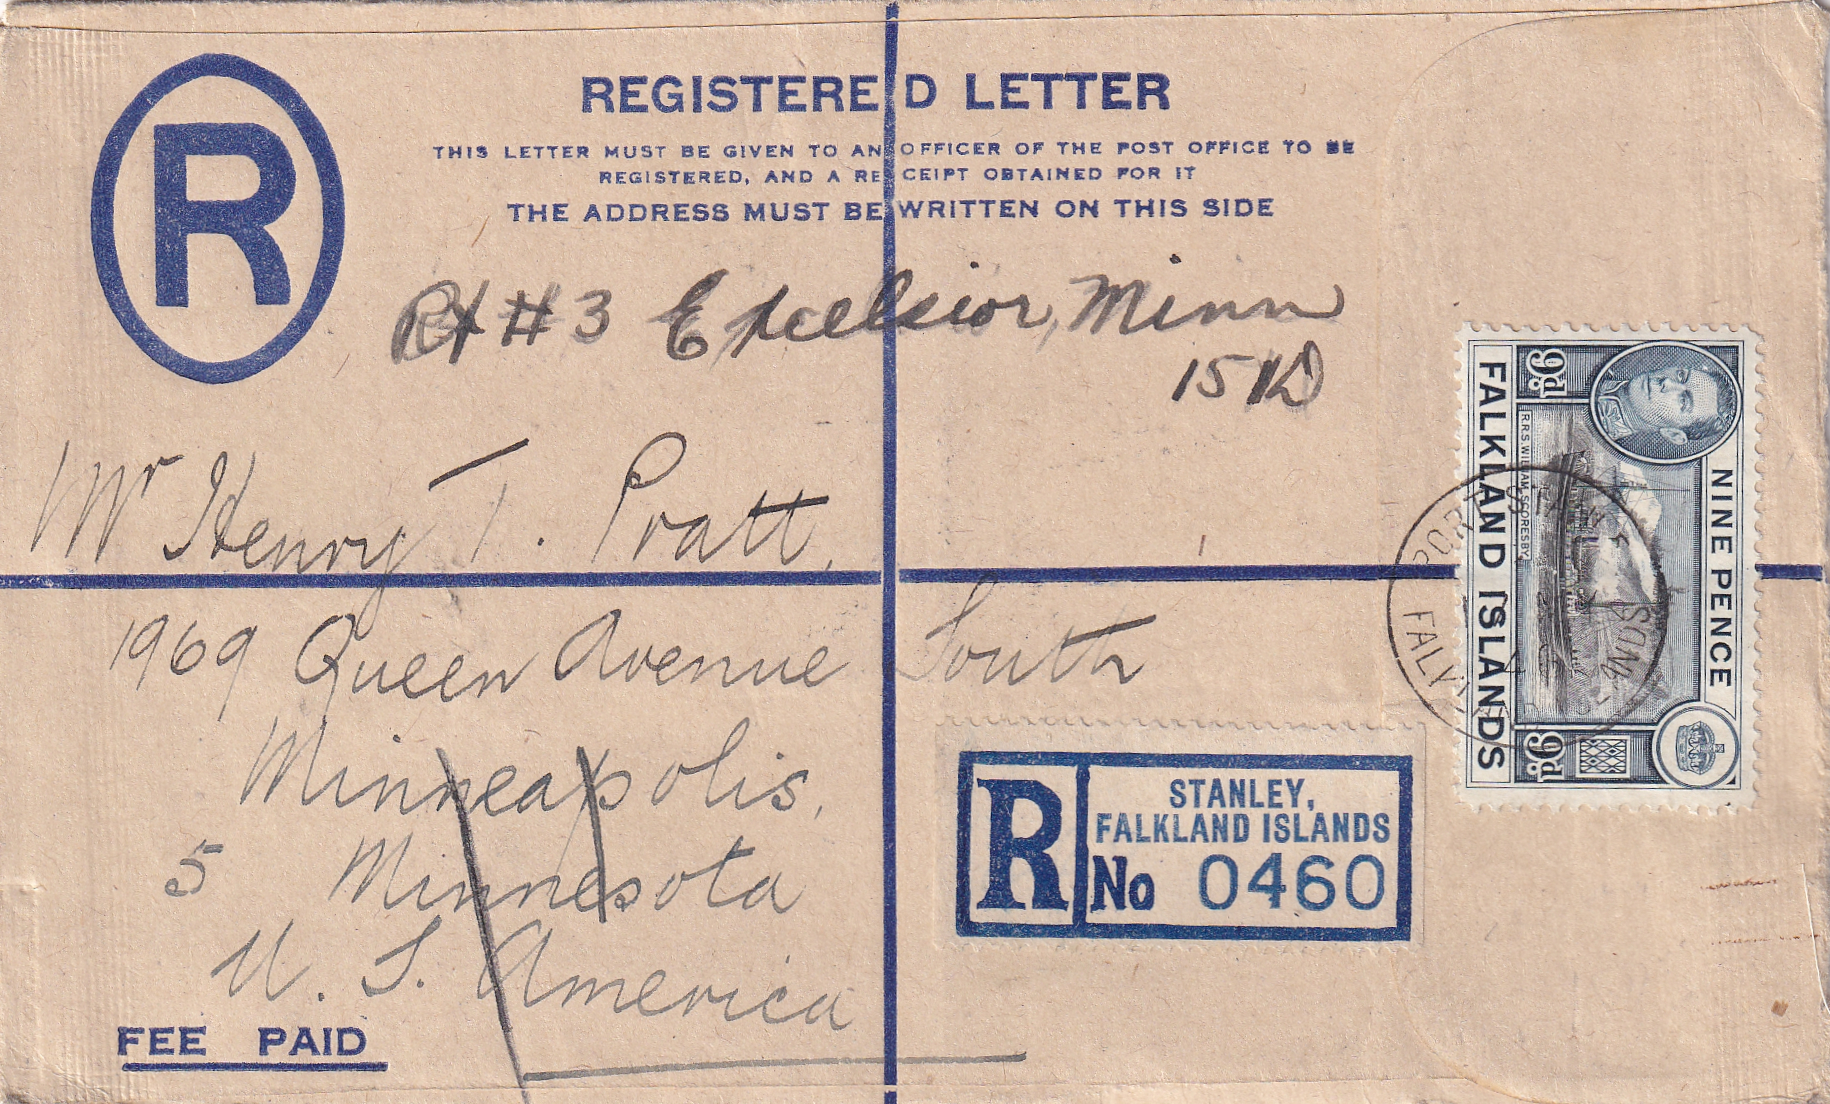 R
REGISTERED LETTER
THIS LETTER MUST BE GIVEN TO AN OFFICER OF THE POST OFFICE TO BE
REGISTERED, AND A RECEIPT OBTAINED FOR IT
THE ADDRESS MUST BE WRITTEN ON THIS SIDE
Rt #3 Excelsior, Minn
15
Mr Henry T. Pratt,
1969 Queen Avenue South
Minneapolis,
5 Minnesota
U. S. America
FEE PAID
R
STANLEY,
FALKLAND ISLANDS
No 0460
NINE PENCE
9d
9d
R.R.S. WILLIAM SCORESBY
FALKLAND ISLANDS